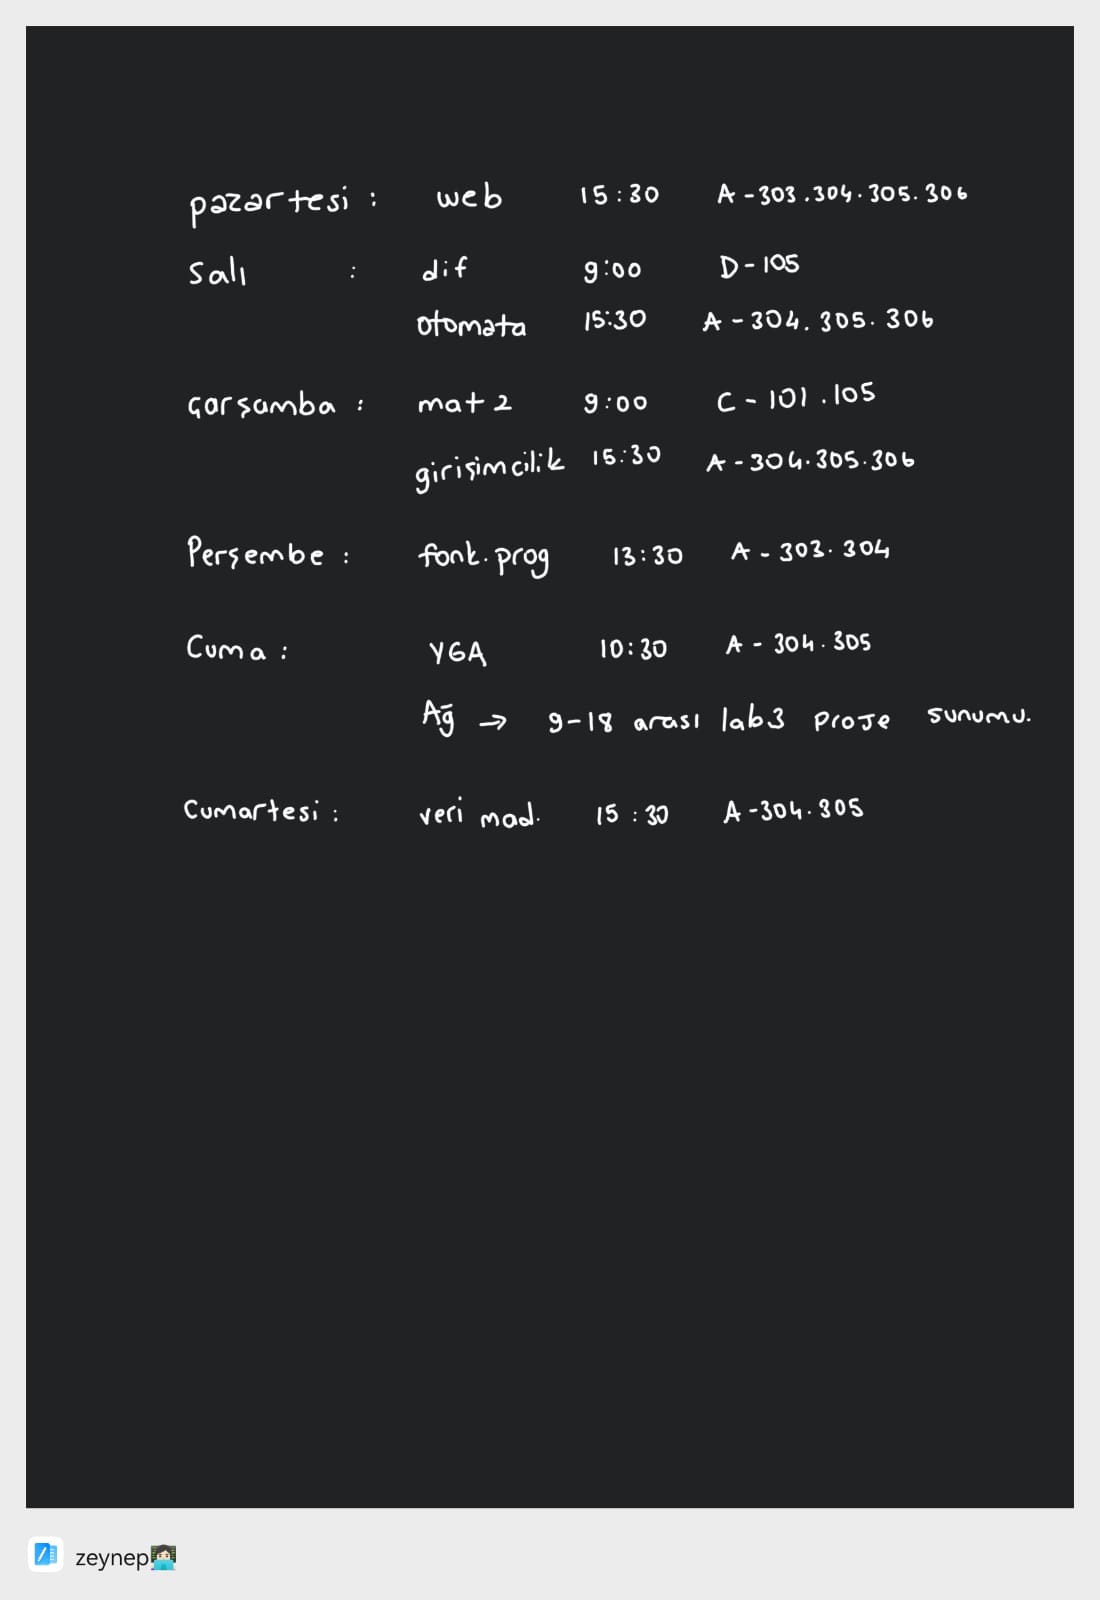 pazartesi : web 15:30 A-303.304.305.306
Salı : dif 9:00 D-105
otomata 15:30 A-304.305.306
Çarşamba : mat 2 9:00 C-101.105
girişimcilik 15:30 A-304.305.306
Perşembe : fonk.prog 13:30 A-303.304
Cuma : YGA 10:30 A-304.305
Ağ → 9-18 arası lab3 proje sunumu.
Cumartesi : veri mad. 15:30 A-304.305
zeynep